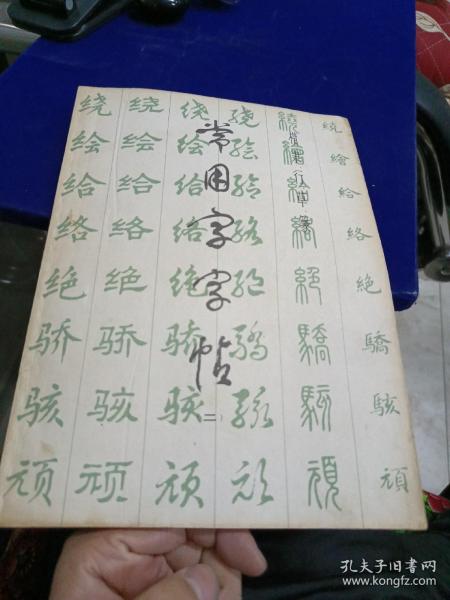 常用字字帖
二
楷隸行草篆
绕 绕 绕 绕 繞 繞
绘 绘 绘 绘 繪 繪
给 给 给 给 給 給
络 络 络 络 絡 絡
绝 绝 绝 绝 絕 絶
骄 骄 骄 骄 驕 驕
骇 骇 骇 骇 駭 駭
顽 顽 顽 顽 頑 頑
孔夫子旧书网
www.kongfz.com